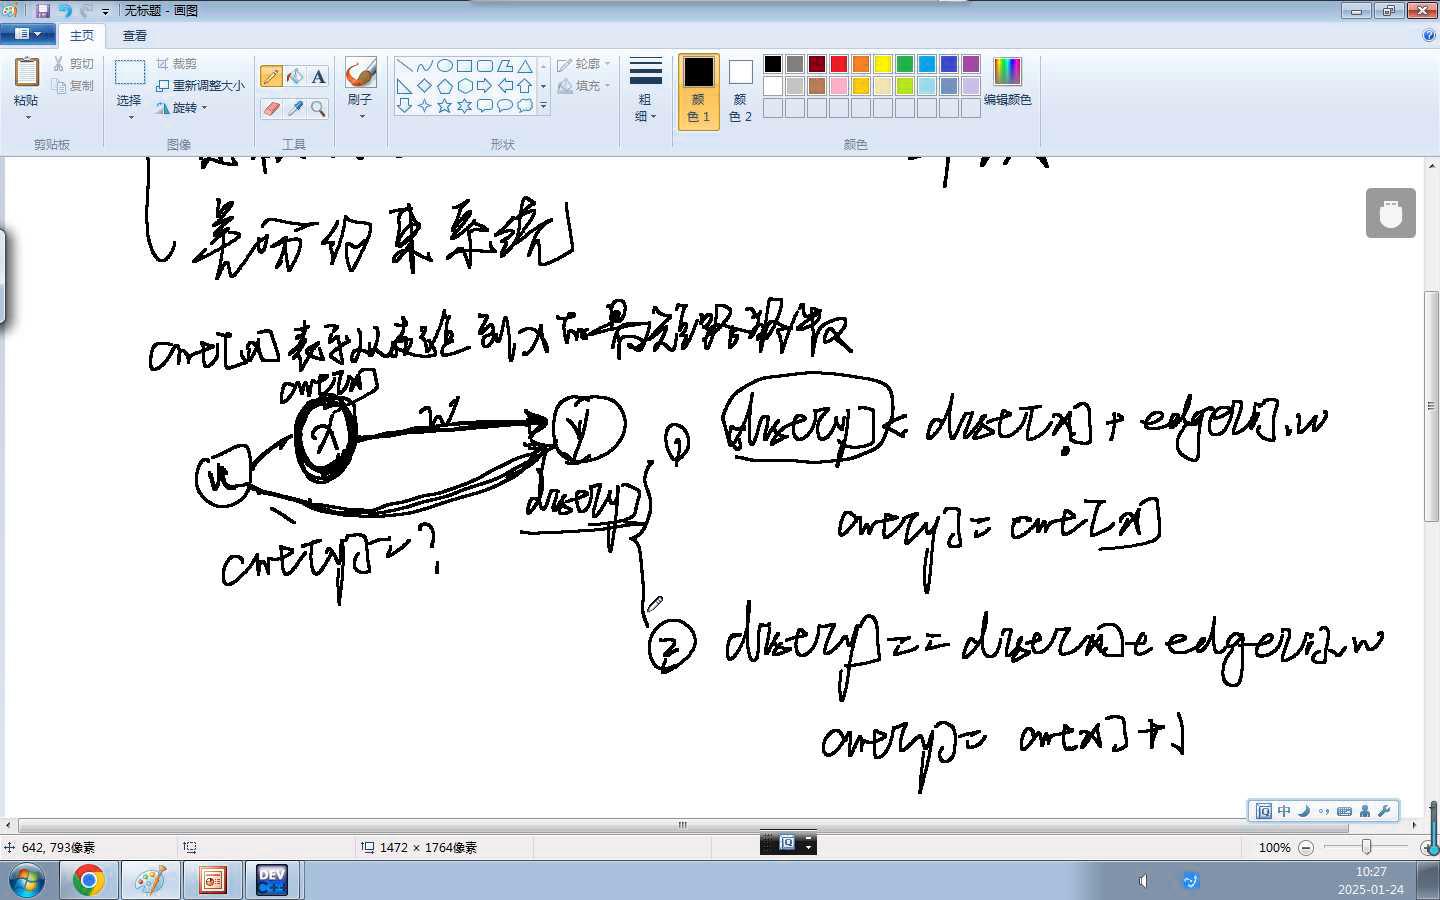 无标题 - 画图
主页 查看
粘贴 剪切 复制 剪贴板
选择 裁剪 重新调整大小 旋转 图像
工具
刷子
轮廓 填充 形状
粗细
颜色 1 颜色 2 编辑颜色 颜色
差分约束系统
cnt[x]表示从起 到x的最短路 数
cnt[x]
x w y
u
dis[y]
cnt[y]=?
① dis[y]< dist[x]+edge[i].w
cnt[y]=cnt[x]
② dis[y]==dis[x]+edge[i].w
cnt[y]= cnt[x]+1
中
642, 793像素 1472 × 1764像素 100%
DEV C++
10:27
2025-01-24